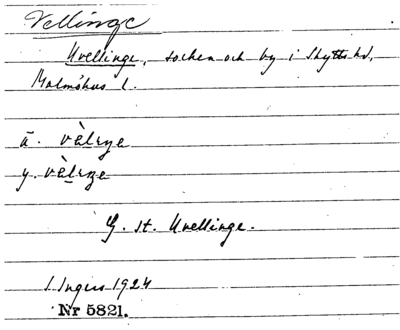 Vellinge
Hvellinge, socken och by i Skytts hd,
Malmöhus l.
ä. vèlıŋe
y. vèlıŋe
G. st. Hvellinge.
S. Ingers 1924
Nr 5821.